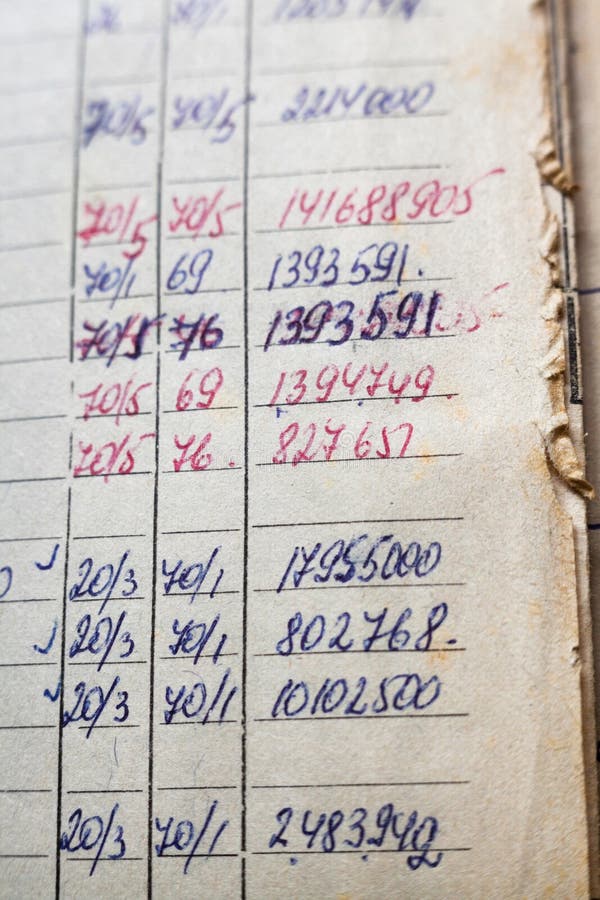 70/1
70/5 70/5 2214000
70/5 70/5 141688905
70/1 69 1393591.
70/5 76 1393591
70/5 69 1394749.
70/5 76. 827651
20/3 70/1 17955000
20/3 70/1 802768.
20/3 70/1 10102500
20/3 70/1 2483949